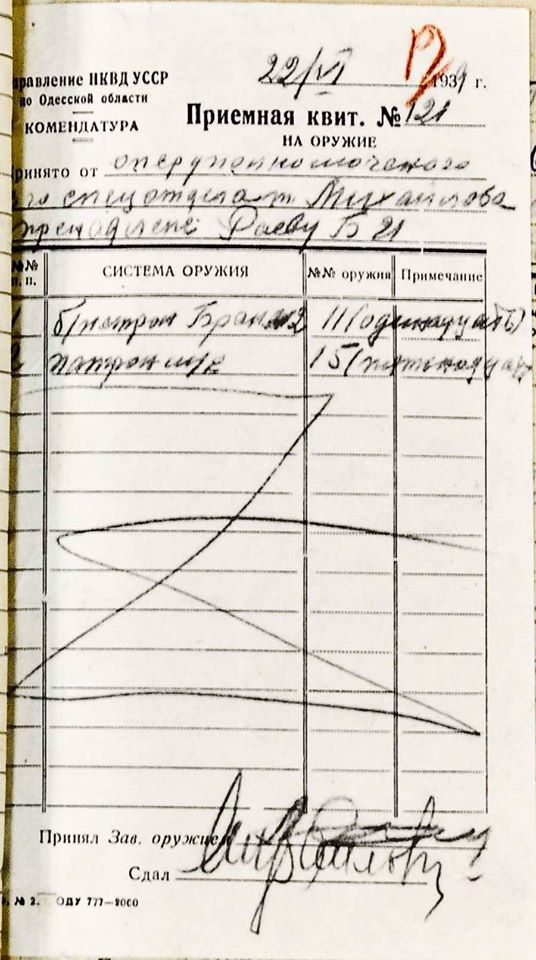 правление НКВД УССР
по Одесской области
КОМЕНДАТУРА
22/VI 1939 г.
Приемная квит. № 121
НА ОРУЖИЕ
ринято от оперуполномоченого
го спецотдела т Михайлова
Раеву Б 21
№№ п. п. СИСТЕМА ОРУЖИЯ №№ оружия Примечание
1 б/патрон Бран №2 11 (одинадцать)
2 патрон 15 (пятнадцать)
Принял Зав. оружием
Сдал Михайлов
. № 2. ОДУ 777—9000